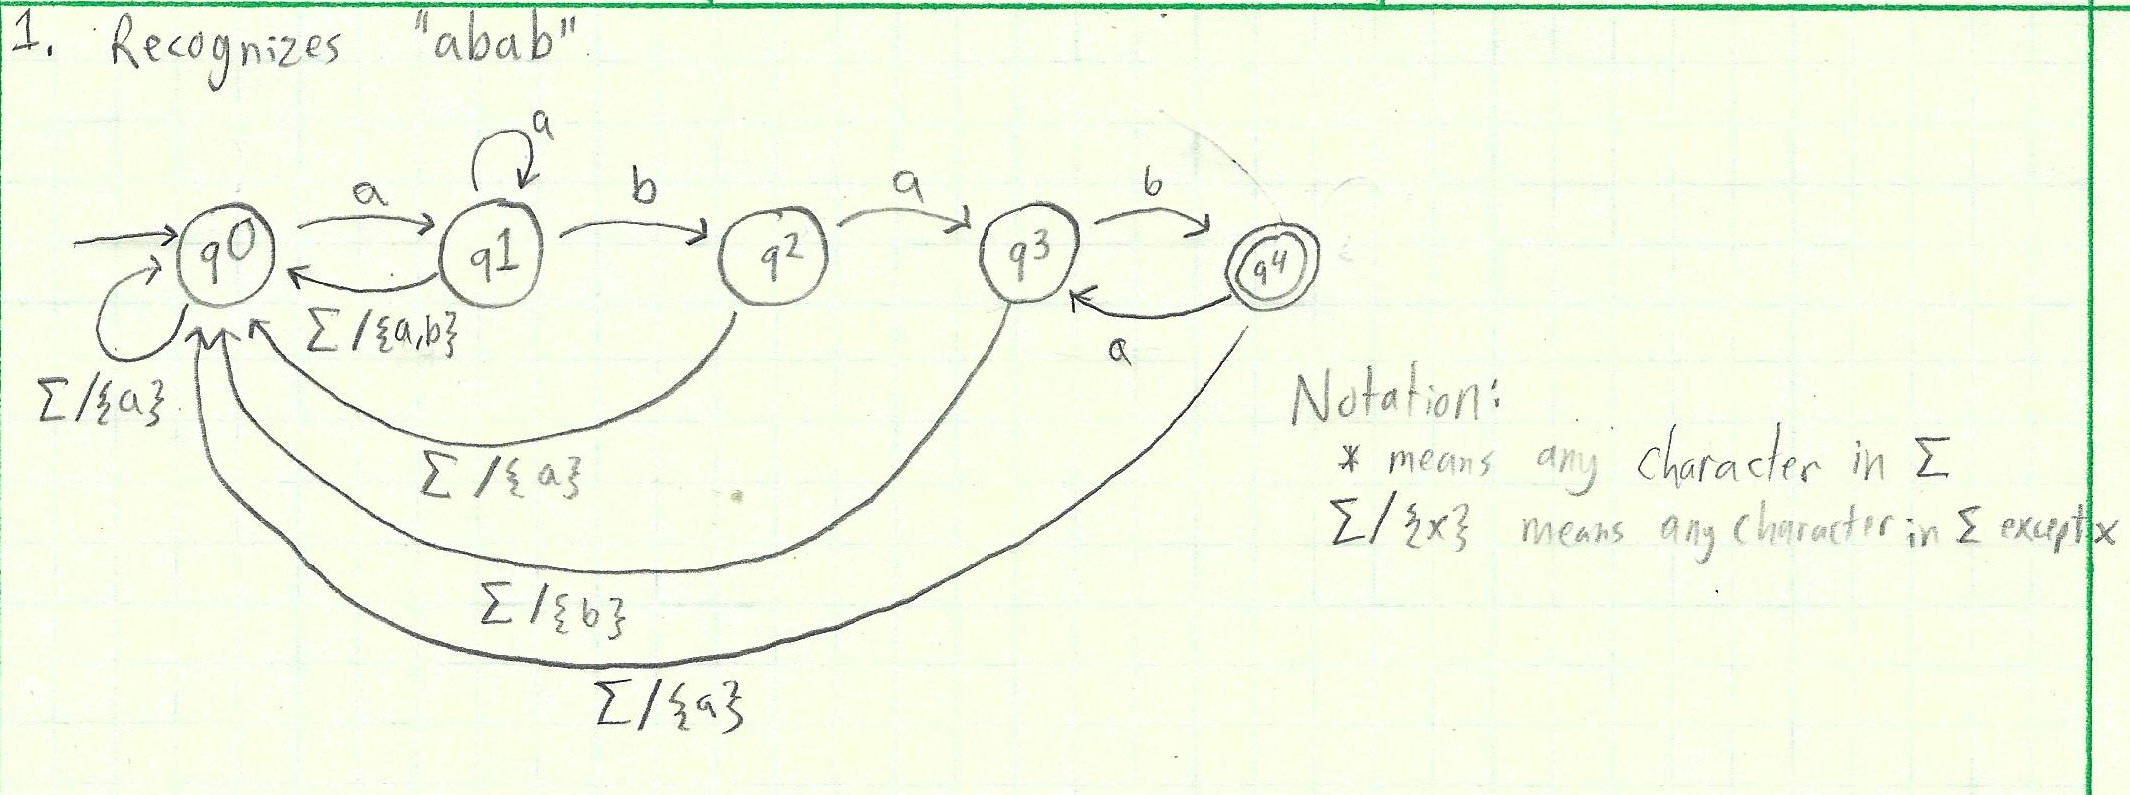 1. Recognizes "abab"
a
a b a b
q0 q1 q2 q3 q4
Σ/{a,b}
a
Σ/{a}
Σ/{a}
Σ/{b}
Σ/{a}
Notation:
* means any character in Σ
Σ/{x} means any character in Σ except x